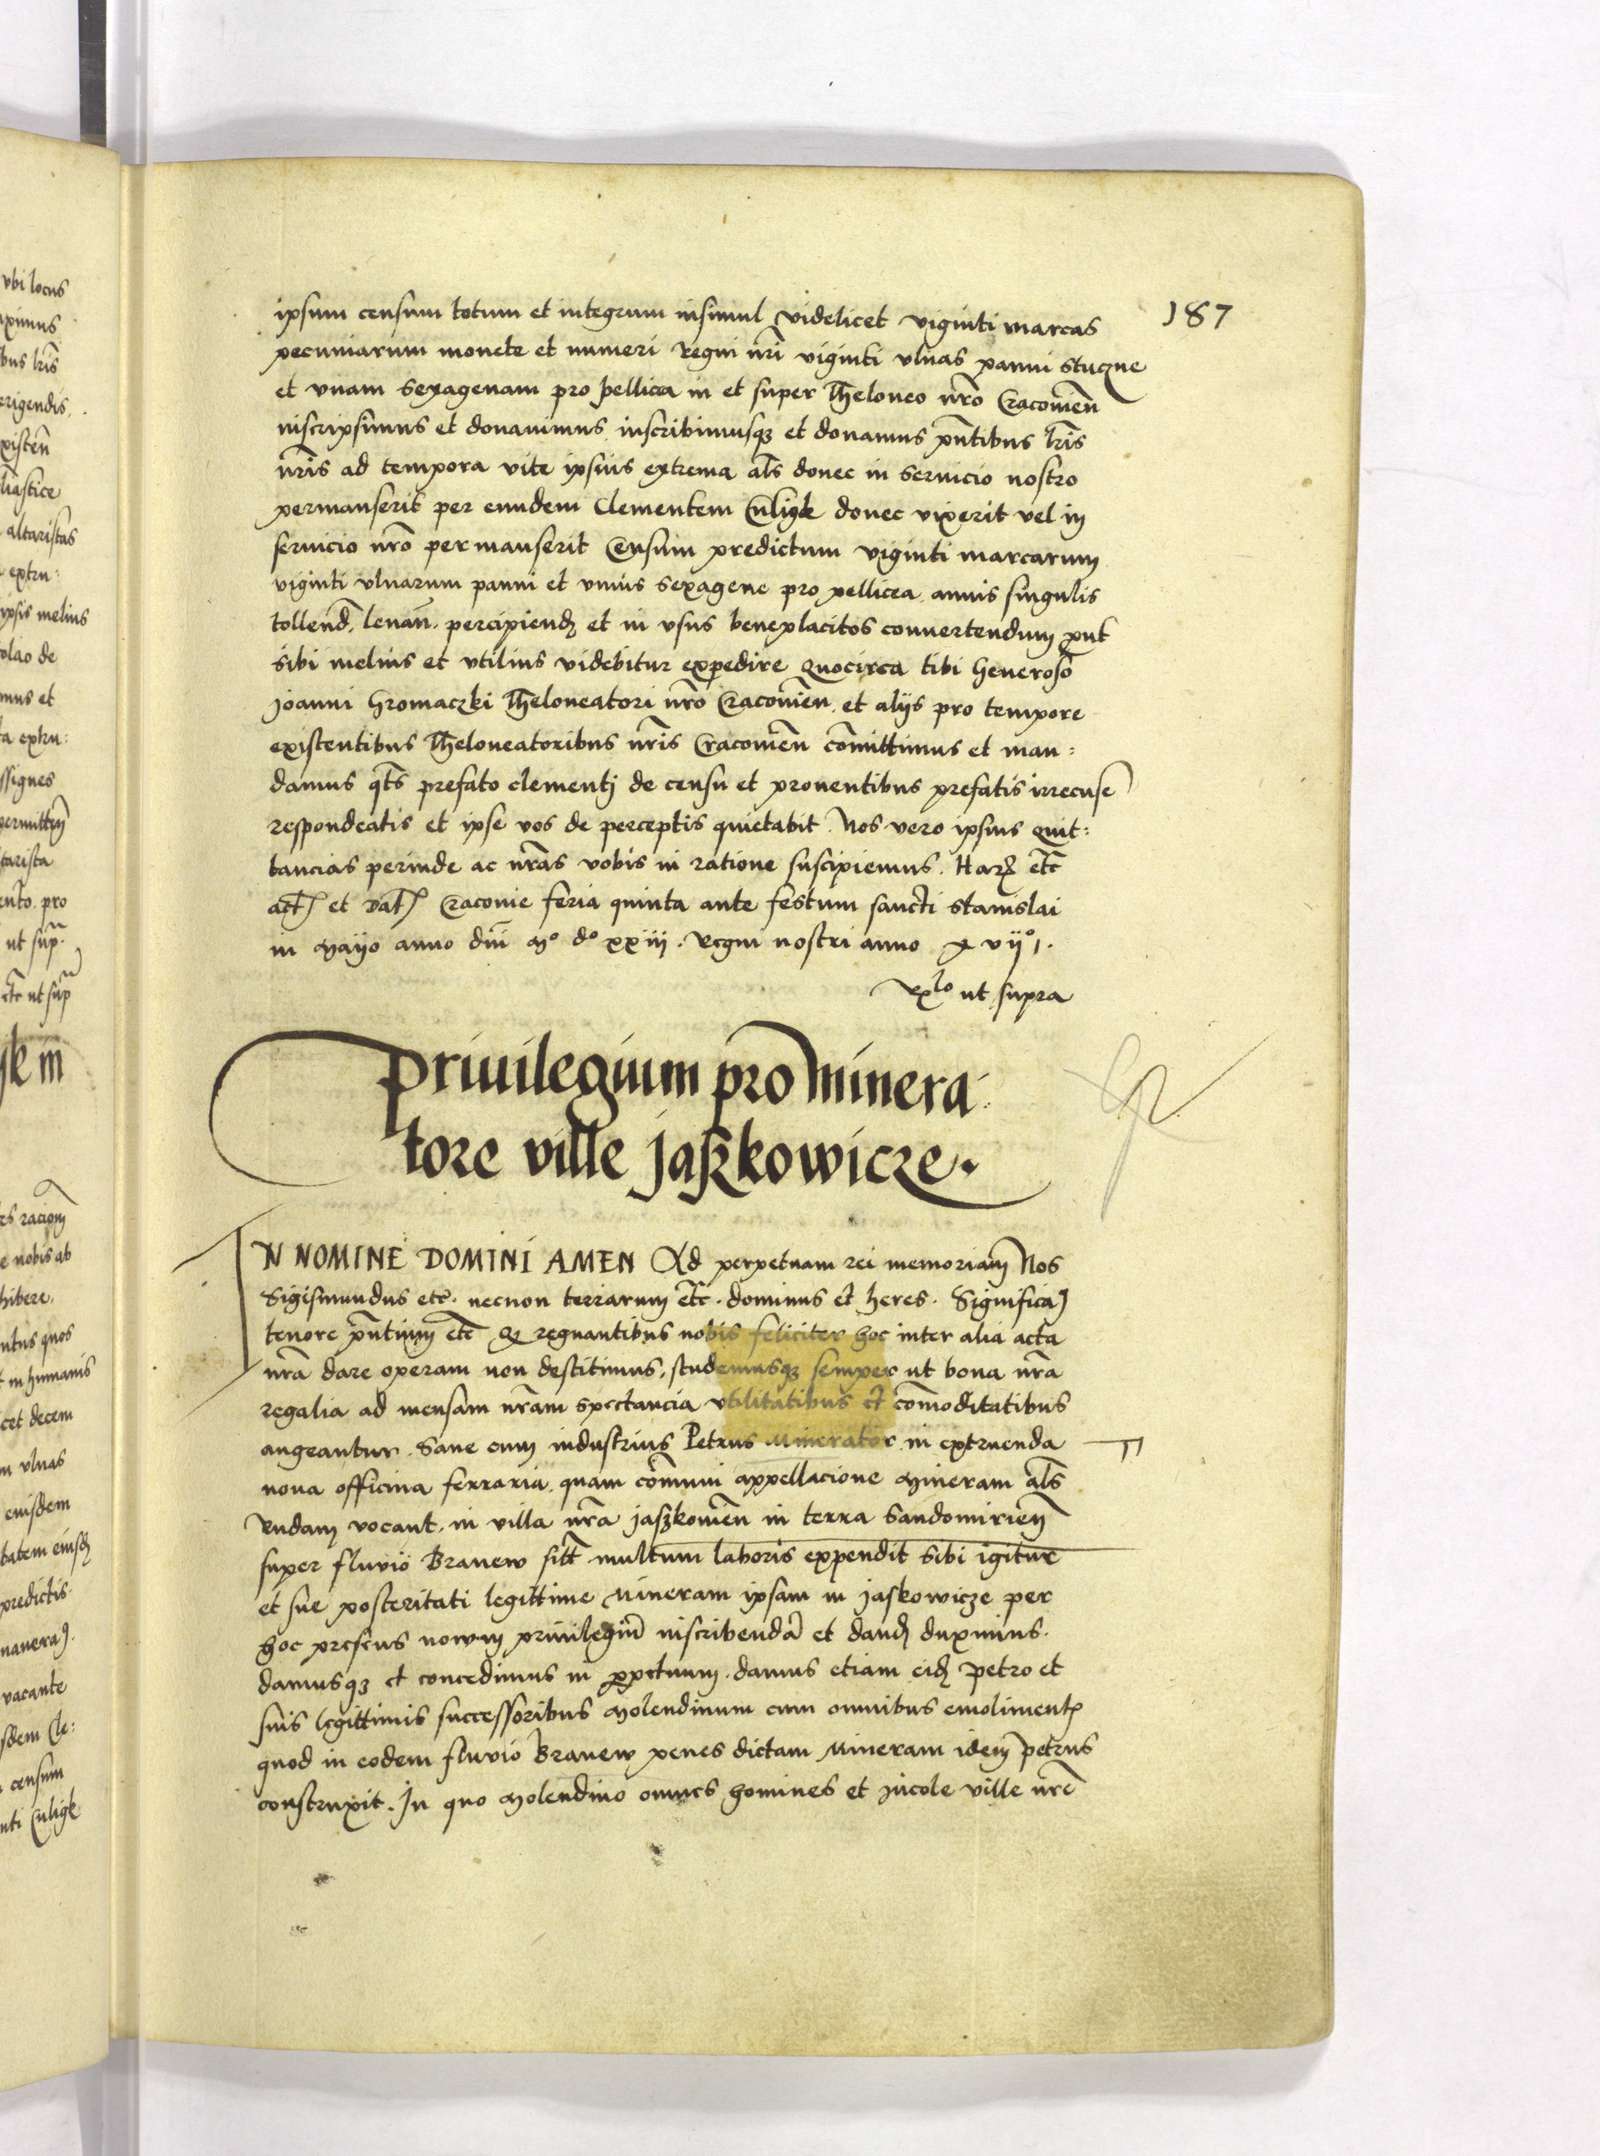 187
ipsum censum totum et integrum insimul videlicet viginti marcas
pecuniarum monete et numeri Regni nr̄i viginti vlnas panni stuczne
et vnam sexagenam pro pellicea in et super Theloneo nr̄o Cracouien̄
inscripsimus et donauimus inscribimusqꝫ et donamus pn̄tibus lr̄is
nr̄is ad tempora vite ipsius extrema al̄s donec in seruicio nostro
permanserit per eundem Clementem Culigk donec vixerit vel in
seruicio nr̄o permanserit Censum predictum viginti marcarum
viginti vlnarum panni et vnius sexagene pro pellicea annis singulis
tollend̄, leuan̄. percipiendꝫ et in vsus beneplacitos conuertendum put̄
sibi melius et vtilius videbitur expedire Quocirca tibi Generoso
Joanni Gromaczki Theloneatori nr̄o Cracouien̄ et alijs pro tempore
existentibus Theloneatoribus nr̄is Cracouien̄ com̄ittimus et man:
damus qt̄s prefato clementj de censu et prouentibus prefatis irrecuse
respondeatis et ipse vos de perceptis quietabit. Nos vero ipsius quit:
tancias perinde ac nr̄as vobis in ratione suscipiemus. Harꝫ etc̄
act̄ et Dat̄ Cracouie feria quinta ante festum sancti stanislai
in Mayo anno dn̄i Mº dº xxiij. Regni nostri anno xvijº.
Rᵉˡᵒ ut supra
Priuilegium pro Minera:
tore ville Jaszkowicze.
IN NOMINE DOMINI AMEN Ad perpetuam rei memoriam̄ Nos
Sigismundus etc̄. necnon terrarum etc̄. dominus et heres. Significaꝫ
tenore pn̄tium etc̄ Qꝫ regnantibus nobis feliciter hoc inter alia acta
nr̄a dare operam non destitimus, studemusqꝫ semper ut bona nr̄a
regalia ad mensam nr̄am spectancia vtilitatibus et com̄oditatibus
augeantur. Sane cum industrius Petrus Minerator in extruenda
noua officina ferraria, quam com̄uni appellacione Mineram al̄s
Rudam vocant, in villa nr̄a jaszkouien̄ in terra Sandomirien̄
super fluvio Branew sitt̄ multum laboris expendit Sibi igitur
et sue posteritati legittime Mineram ipsam in jaskowicze per
hoc presens nouum priuilegiū inscribendā et dandꝫ duximus.
damusqꝫ et concedimus in ꝑpetuum. damus etiam eidꝫ Petro et
suis legittimis successoribus Molendinum cum omnibus emolimentꝫ
quod in eodem fluvio Branew penes dictam Mineram idem petrus
construxit. In quo Molendino omnes homines et Incole ville nr̄e